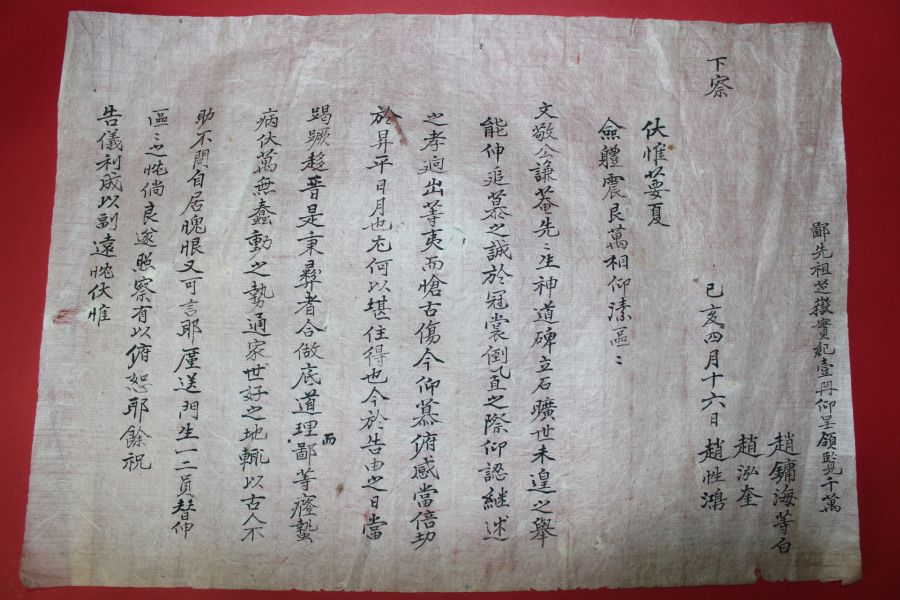 伏惟蓂夏
僉軆震艮萬相仰溸區〻
文敬公謙菴先〻生神道碑立石曠世未遑之舉
能伸追慕之誠於冠裳倒置之際仰認継述
之孝逈出等夷而愴古傷今仰慕俯感當倍切
於昇平日月也尤何以堪住得也今於告由之日當
蹶趍晉是秉彛者合做底道理而鄙等癃蟄
病伏萬無蠢動之勢通家世好之地輒以古人不
助不問自居愧恨又可言耶廑送門生一二員替伸
區〻之忱倘良遂照察有以俯恕耶餘祝
告儀利成以副遠忱伏惟
下察
己亥四月十六日
趙性鴻
趙泓奎
趙鏞海等白
鄙先祖芝嶽實紀壹冊仰呈領覽千萬